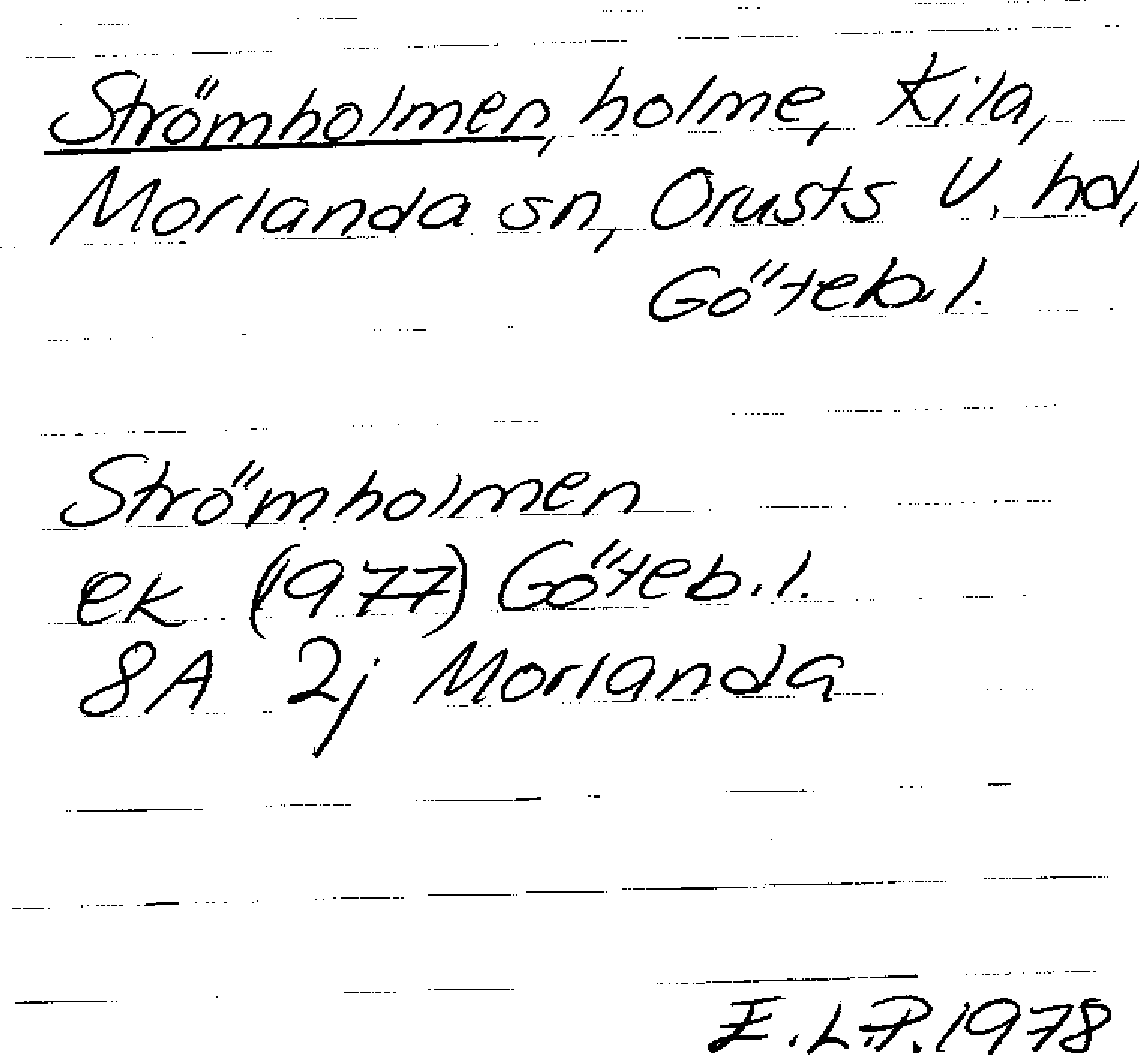 Strömholmen, holme, Kila,
Morlanda sn, Orusts V. hd,
Göteb. l.
Strömholmen
ek (1977) Göteb. l.
8A 2j Morlanda
E.L.P. 1978